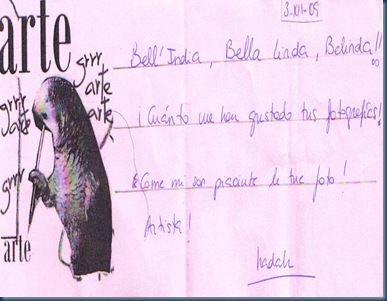 3-XII-09
arte
grrr
arte
arte
grrr
arte
grrr
arte
Bell'India, Bella linda, Belinda!!
¡Cuánto me han gustado tus fotografías!
Come mi son piaciute le tue foto!
Artista!
hadah